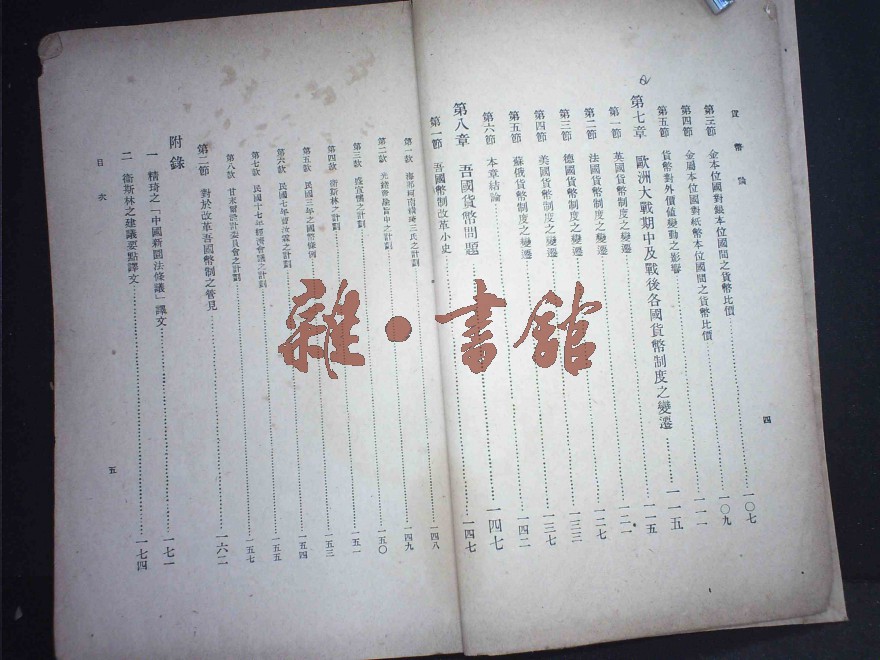 貨幣論
第三節 金本位國對銀本位國間之貨幣比價……一〇七
第四節 金屬本位國對紙幣本位國間之貨幣比價……一〇九
第五節 貨幣對外價値變動之影響……一一一
第七章 歐洲大戰期中及戰後各國貨幣制度之變遷……一一五
第一節 英國貨幣制度之變遷……一一五
第二節 法國貨幣制度之變遷……一二一
第三節 德國貨幣制度之變遷……一二七
第四節 美國貨幣制度之變遷……一三三
第五節 蘇俄貨幣制度之變遷……一三七
第六節 本章結論……一四二
四
第八章 吾國貨幣問題……一四七
第一節 吾國幣制改革小史……一四七
第一款 三氏之計劃……一四八
第二款 光緖 旨中之計劃……一四九
第三款 盛宣懷之計劃……一五〇
第四款 衞斯林之計劃……一五一
第五款 民國三年之國幣條例……一五三
第六款 民國七年曹汝霖之計劃……一五四
第七款 民國十七年經濟會議之計劃……一五五
第八款 甘末爾設計委員會之計劃……一五七
第二節 對於改革吾國幣制之管見……一六二
附錄
一 精琦之「中國新圜法條議」譯文……一七一
二 衞斯林之建議要點譯文……一七四
目次
五
雜·書館